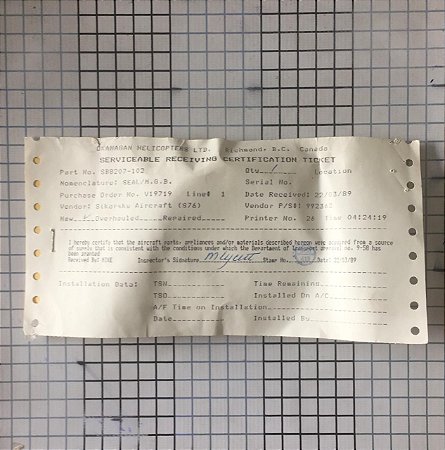 OKANAGAN HELICOPTERS LTD. Richmond, B.C. Canada
SERVICEABLE RECEIVING CERTIFICATION TICKET
Part No. SB8207-102 Qty / Location
Nomenclature: SEAL/M.G.B. Serial No.
Purchase Order No. V19719 Line# 1 Date Received: 22/03/89
Vendor: Sikorsky Aircraft (S76) Vendor P/S#: 992363
New Overhauled Repaired Printer No. 26 Time 04:24:19
I hereby certify that the aircraft parts, appliances and/or materials described hereon were acquired from a source
of supply that is consistent with the conditions under which the Department of Transport approval no. 9-58 has
been granted
Received By: MIKE Inspector's Signature Stamp No. Date: 22/03/89
Installation Data: TSN Time Remaining
TSO Installed On A/C
A/F Time on Installation
Date Installed By